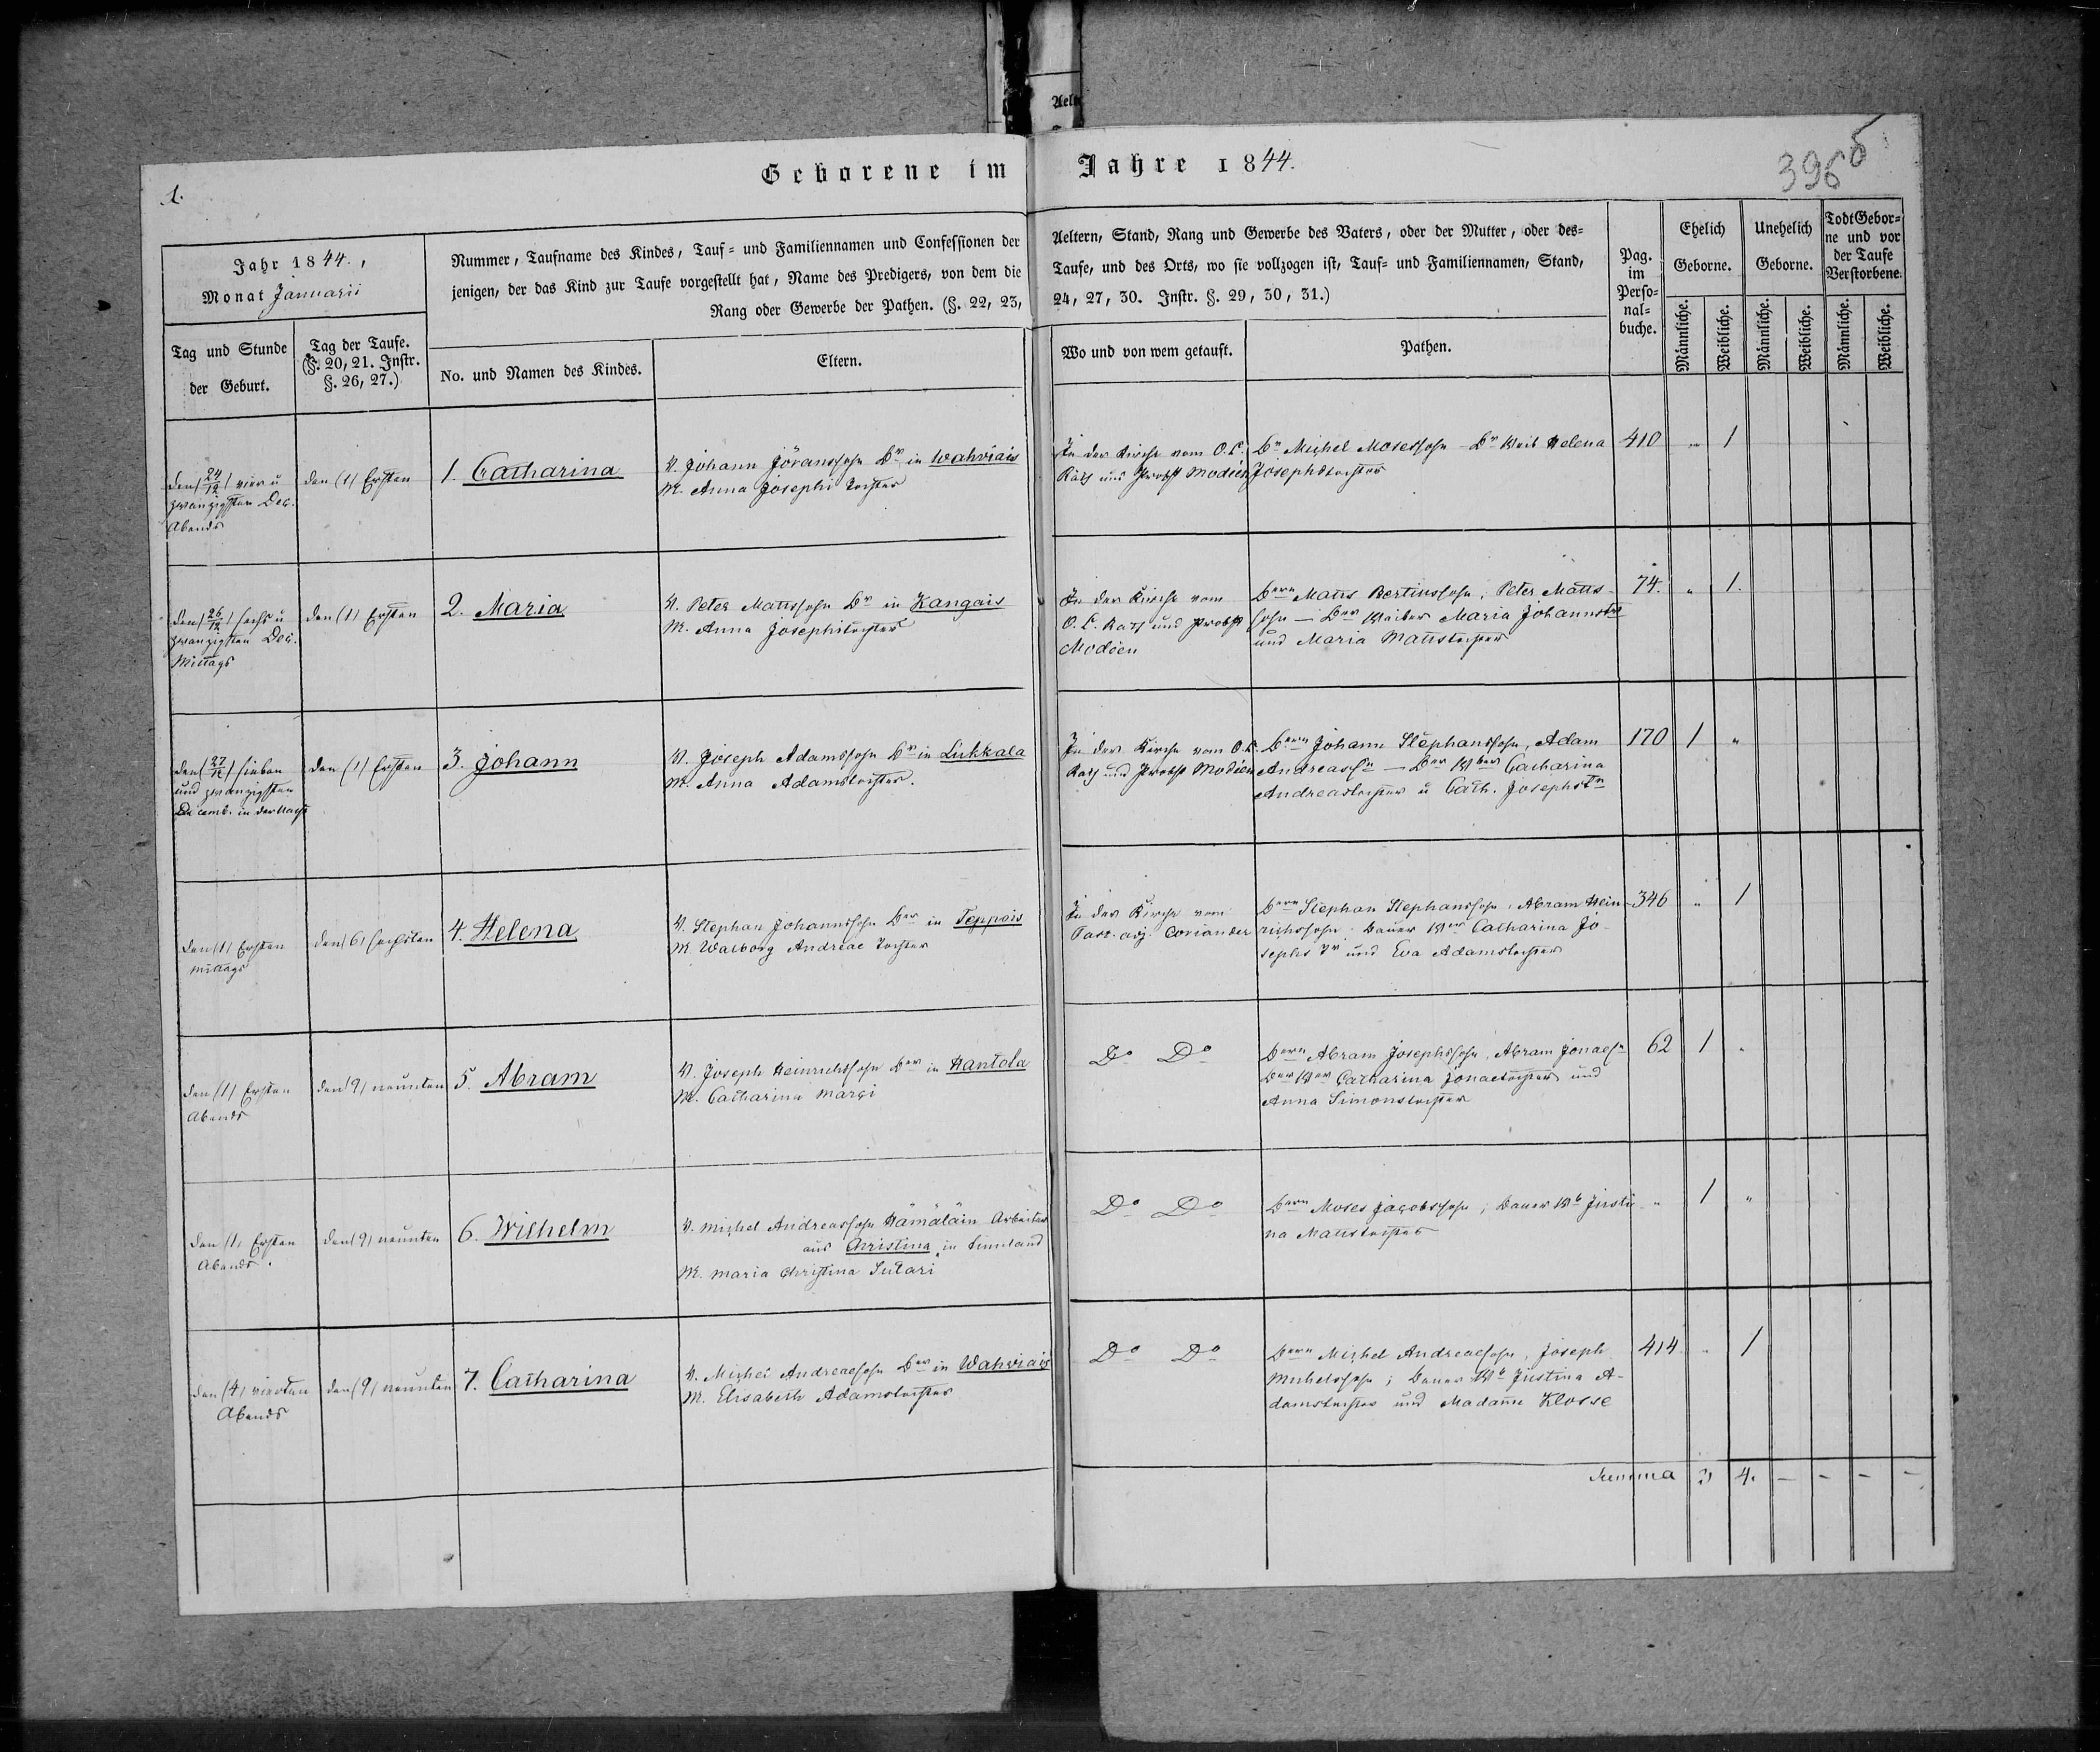 Aelt
1.
Geborene im Jahre 1844.
396 б
Jahr 1844.,
Monat Januarii
Nummer, Taufname des Kindes, Tauf- und Familiennamen und Confessionen der
jenigen, der das Kind zur Taufe vorgestellt hat, Name des Predigers, von dem die
Rang oder Gewerbe der Pathen. (§. 22, 23,
Aeltern, Stand, Rang und Gewerbe des Vaters, oder der Mutter, oder des-
Taufe, und des Orts, wo sie vollzogen ist, Tauf- und Familiennamen, Stand,
24, 27, 30. Instr. §. 29, 30, 31.)
Pag.
im
Perso-
nal-
buche.
Ehelich
Geborne.
Unehelich
Geborne.
Todt Gebor-
ne und vor
der Taufe
Verstorbene.
Tag und Stunde
der Geburt.
Tag der Taufe.
(§. 20, 21. Instr.
§. 26, 27.)
No. und Namen des Kindes.
Eltern.
Wo und von wem getauft.
Pathen.
Männliche.
Weibliche.
Männliche.
Weibliche.
Männliche.
Weibliche.
den (24/12) vier u
zwanzigsten Dec.
Abends
den (1) Ersten
1. Catharina
V. Johann Jöranssohn Br in Wahviais
M. Anna Josephi Tochter
In der Kirche vom O. C.
Rath und Probst Modéen
Br Michel Mosessohn - Br Weib Helena
Josephstochter
410 " 1
den (26/12) sechs u
zwanzigsten Dec.
Mittags
den (1) Ersten
2. Maria
V. Peter Mattssohn Br in Kangais
M. Anna Josephitochter
In der Kirche vom
O. C. Rath und Probst
Modéen
Bern Matts Bertinssohn, Peter Matts-
sohn — Der Weiber Maria Johannstr
und Maria Mattstochter
74. " 1.
den (27/12) sieben
und zwanzigsten
Decemb. in der Nacht
den (1) Ersten
3. Johann
V. Joseph Adamssohn Br in Liikkala
M. Anna Adamstochter.
In der Kirche vom O. C.
Rath und Probst Modéen
Bern Johann Stephanssohn, Adam
Andreassn — Der Wber Catharina
Andreastochter u Cath. Josephstn
170 1 "
den (1) Ersten
Mittags
den (6) sechsten
4. Helena
V. Stephan Johannssohn Ber in Teppois
M. Walborg Andreae Tochter
In der Kirche vom
Past. adj. Coriander
Bern Stephan Stephanssohn, Abram Hein-
richssohn; Bauer Wer Catharina Jo-
sephs Tr und Eva Adamstochter
346 " 1
den (1) Ersten
Abends
den (9) neunten
5. Abram
V. Joseph Heinrichssohn Ber in Hantola
M. Catharina Marci
Do Do
Bern Abram Josephssohn, Abram Jonaesn
Ber Wer Catharina Jonaetochter und
Anna Simonstochter
62 1 "
den (1) Ersten
Abends.
den (9) neunten
6. Wilhelm
V. Michel Andreassohn Hämäläin Arbeiter
aus Christina in Finnland
M. Maria Christina Sutari
Do Do
Bern Moses Jacobssohn; Bauer Wb Justi-
na Mattstochter
" 1 "
den (4) vierten
Abends
den (9) neunten
7. Catharina
V. Michel Andreaesohn Ber in Wahviais
M. Elisabeth Adamstochter
Do Do
Bern Michel Andreaesohn, Joseph
Michelssohn; Bauer Wb Justina A-
damstochter und Madame Klosse
414 " 1
Summa 3 4. - - - -